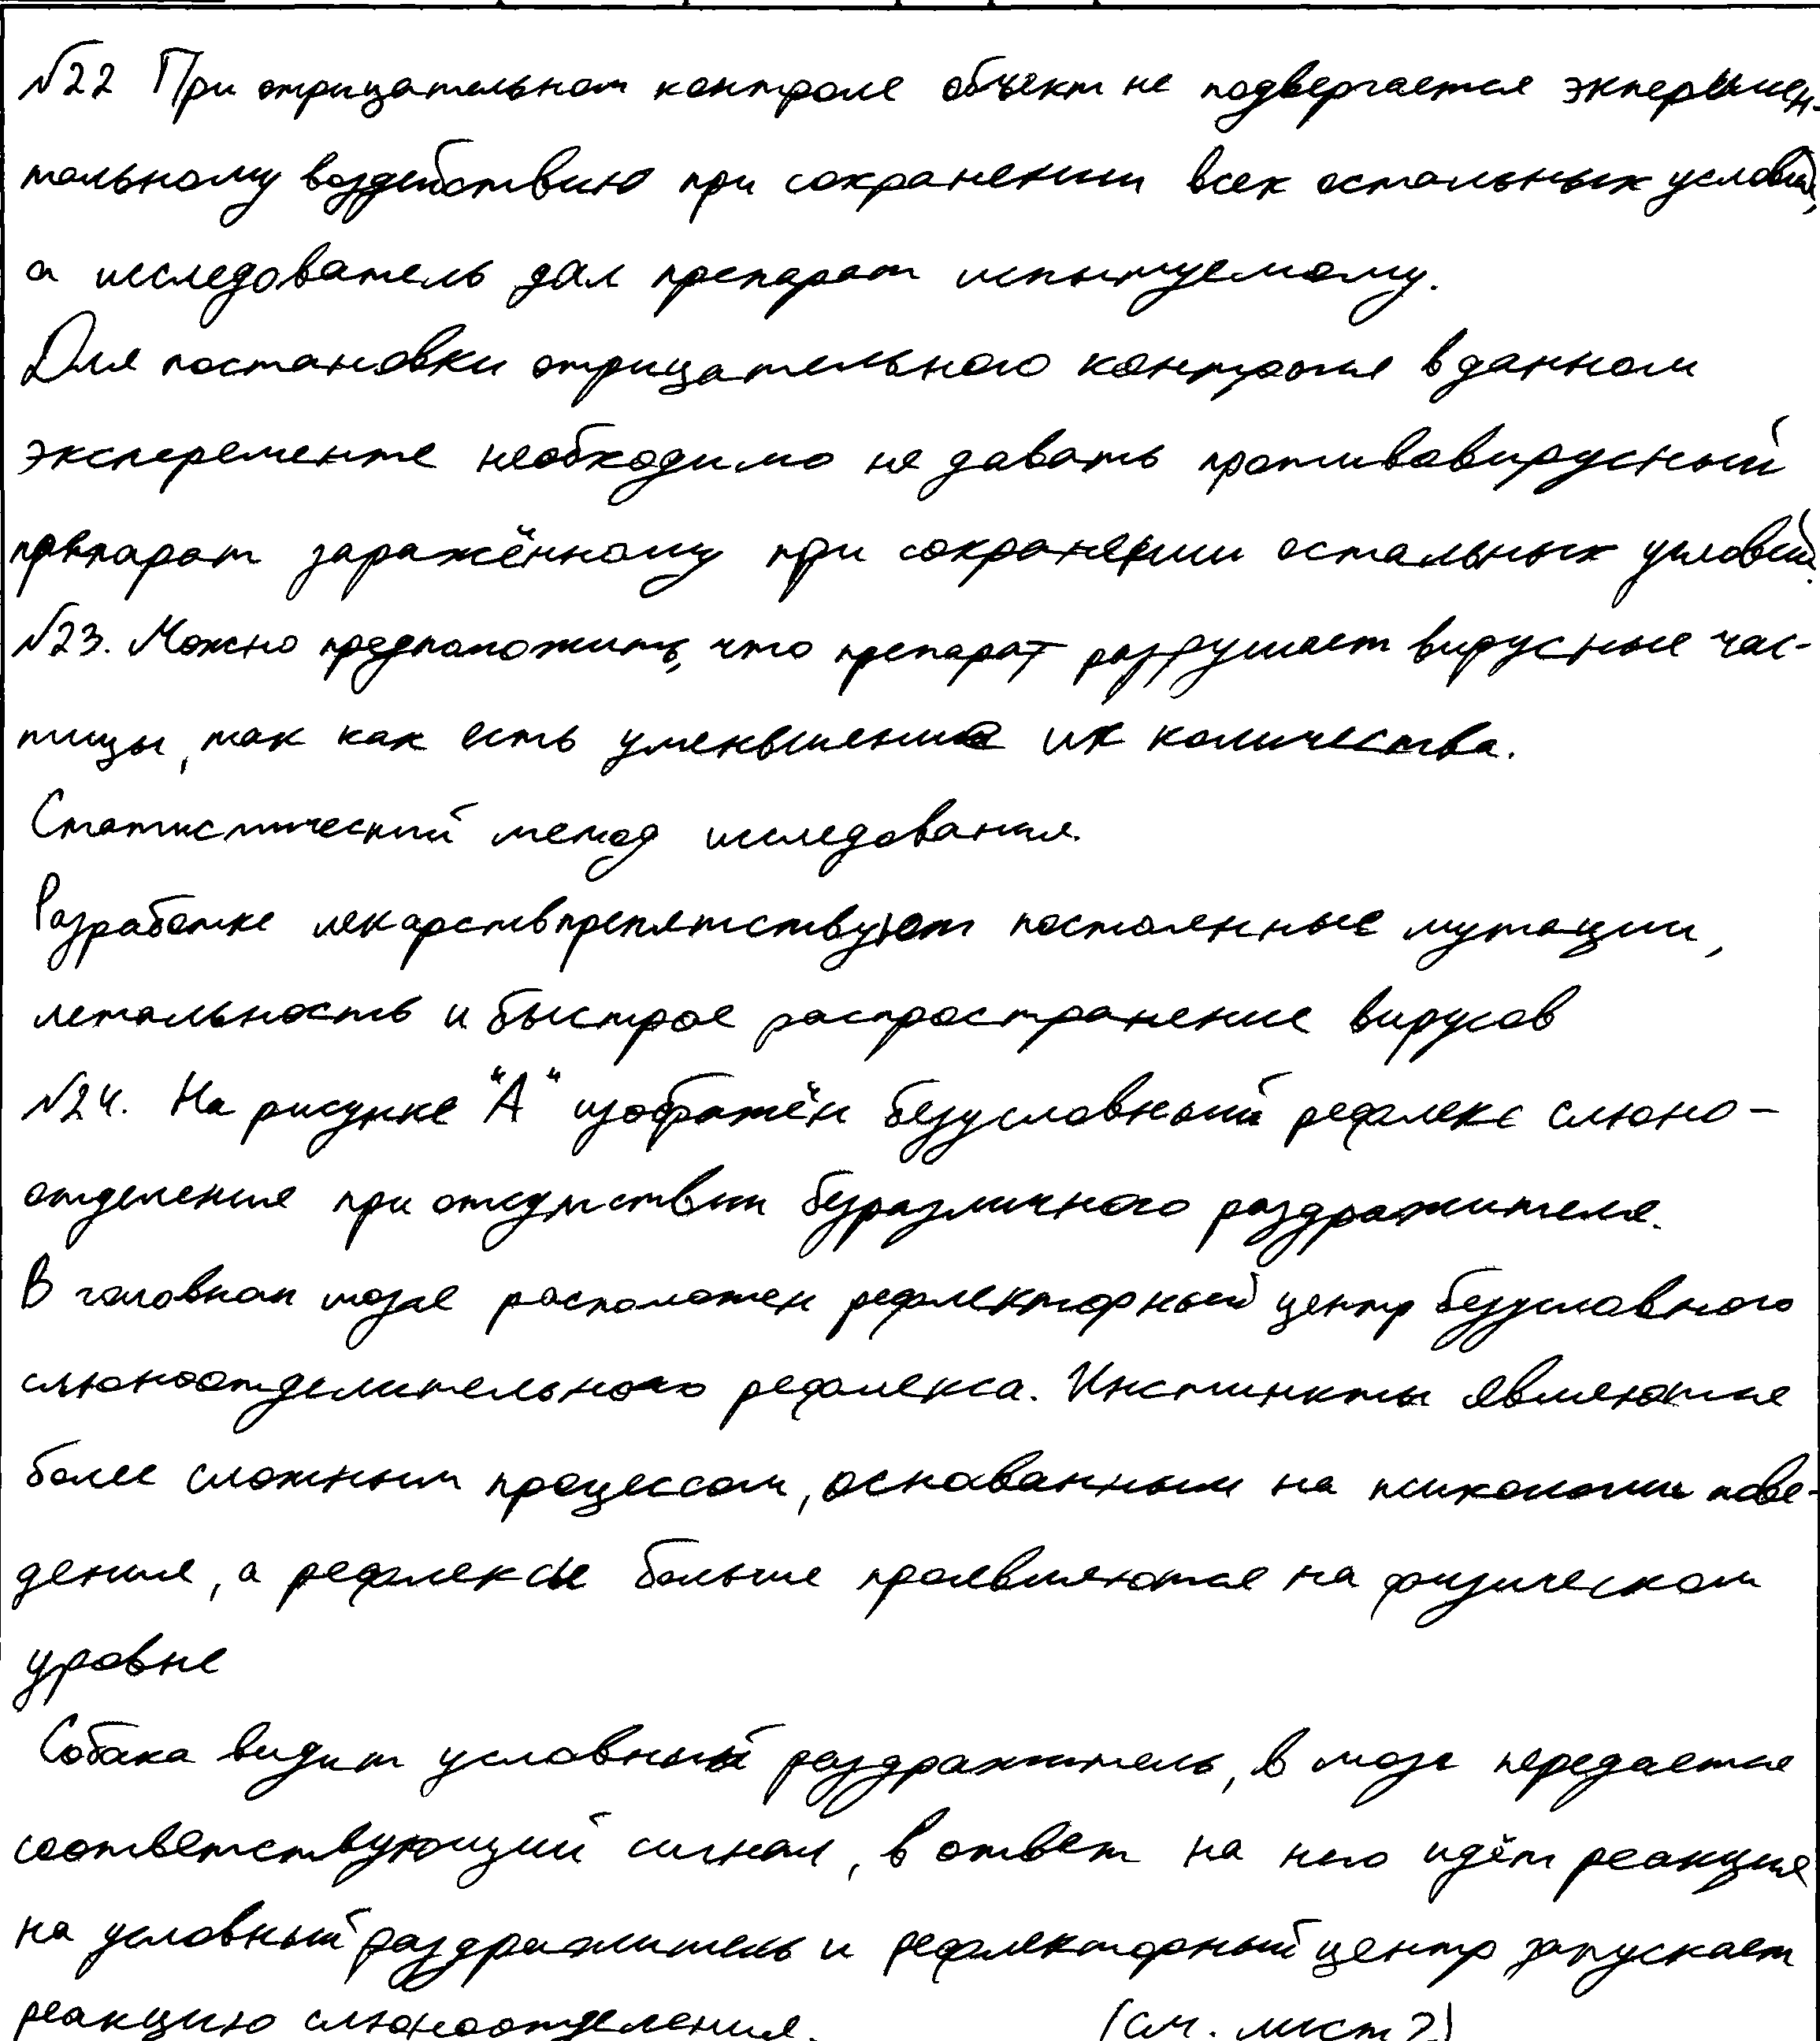 №22 При отрицательном контроле объект не подвергается экперимен-
тальному воздействию при сохранении всех остальных условий,
а исследователь дал препарат испытуемому.
Для постановки отрицательного контроля в данном
эксперементе необходимо не давать противовирусный
препарат заражённому при сохранении остальных условий.
№23. Можно предположить, что препарат разрушает вирусные час-
тицы, так как есть уменьшение их количества.
Статистический метод исследования.
Разработке лекарств препятствуют постоянные мутации,
летальность и быстрое распространение вирусов
№24. На рисунке "А" изображён безусловный рефлекс слюно-
отделения при отсутствии безразличного раздражителя.
В головном мозге расположен рефлекторный центр безусловного
слюноотделительного рефлекса. Инстинкты являются
более сложным процессом, основанным на психологии пове-
дения, а рефлексы больше проявляются на физическом
уровне
Собака видит условный раздражитель, в мозг передается
соответствующий сигнал, в ответ на него идёт реакция
на условный раздражитель и рефлекторный центр запускает
реакцию слюноотделения. (см. лист 2)